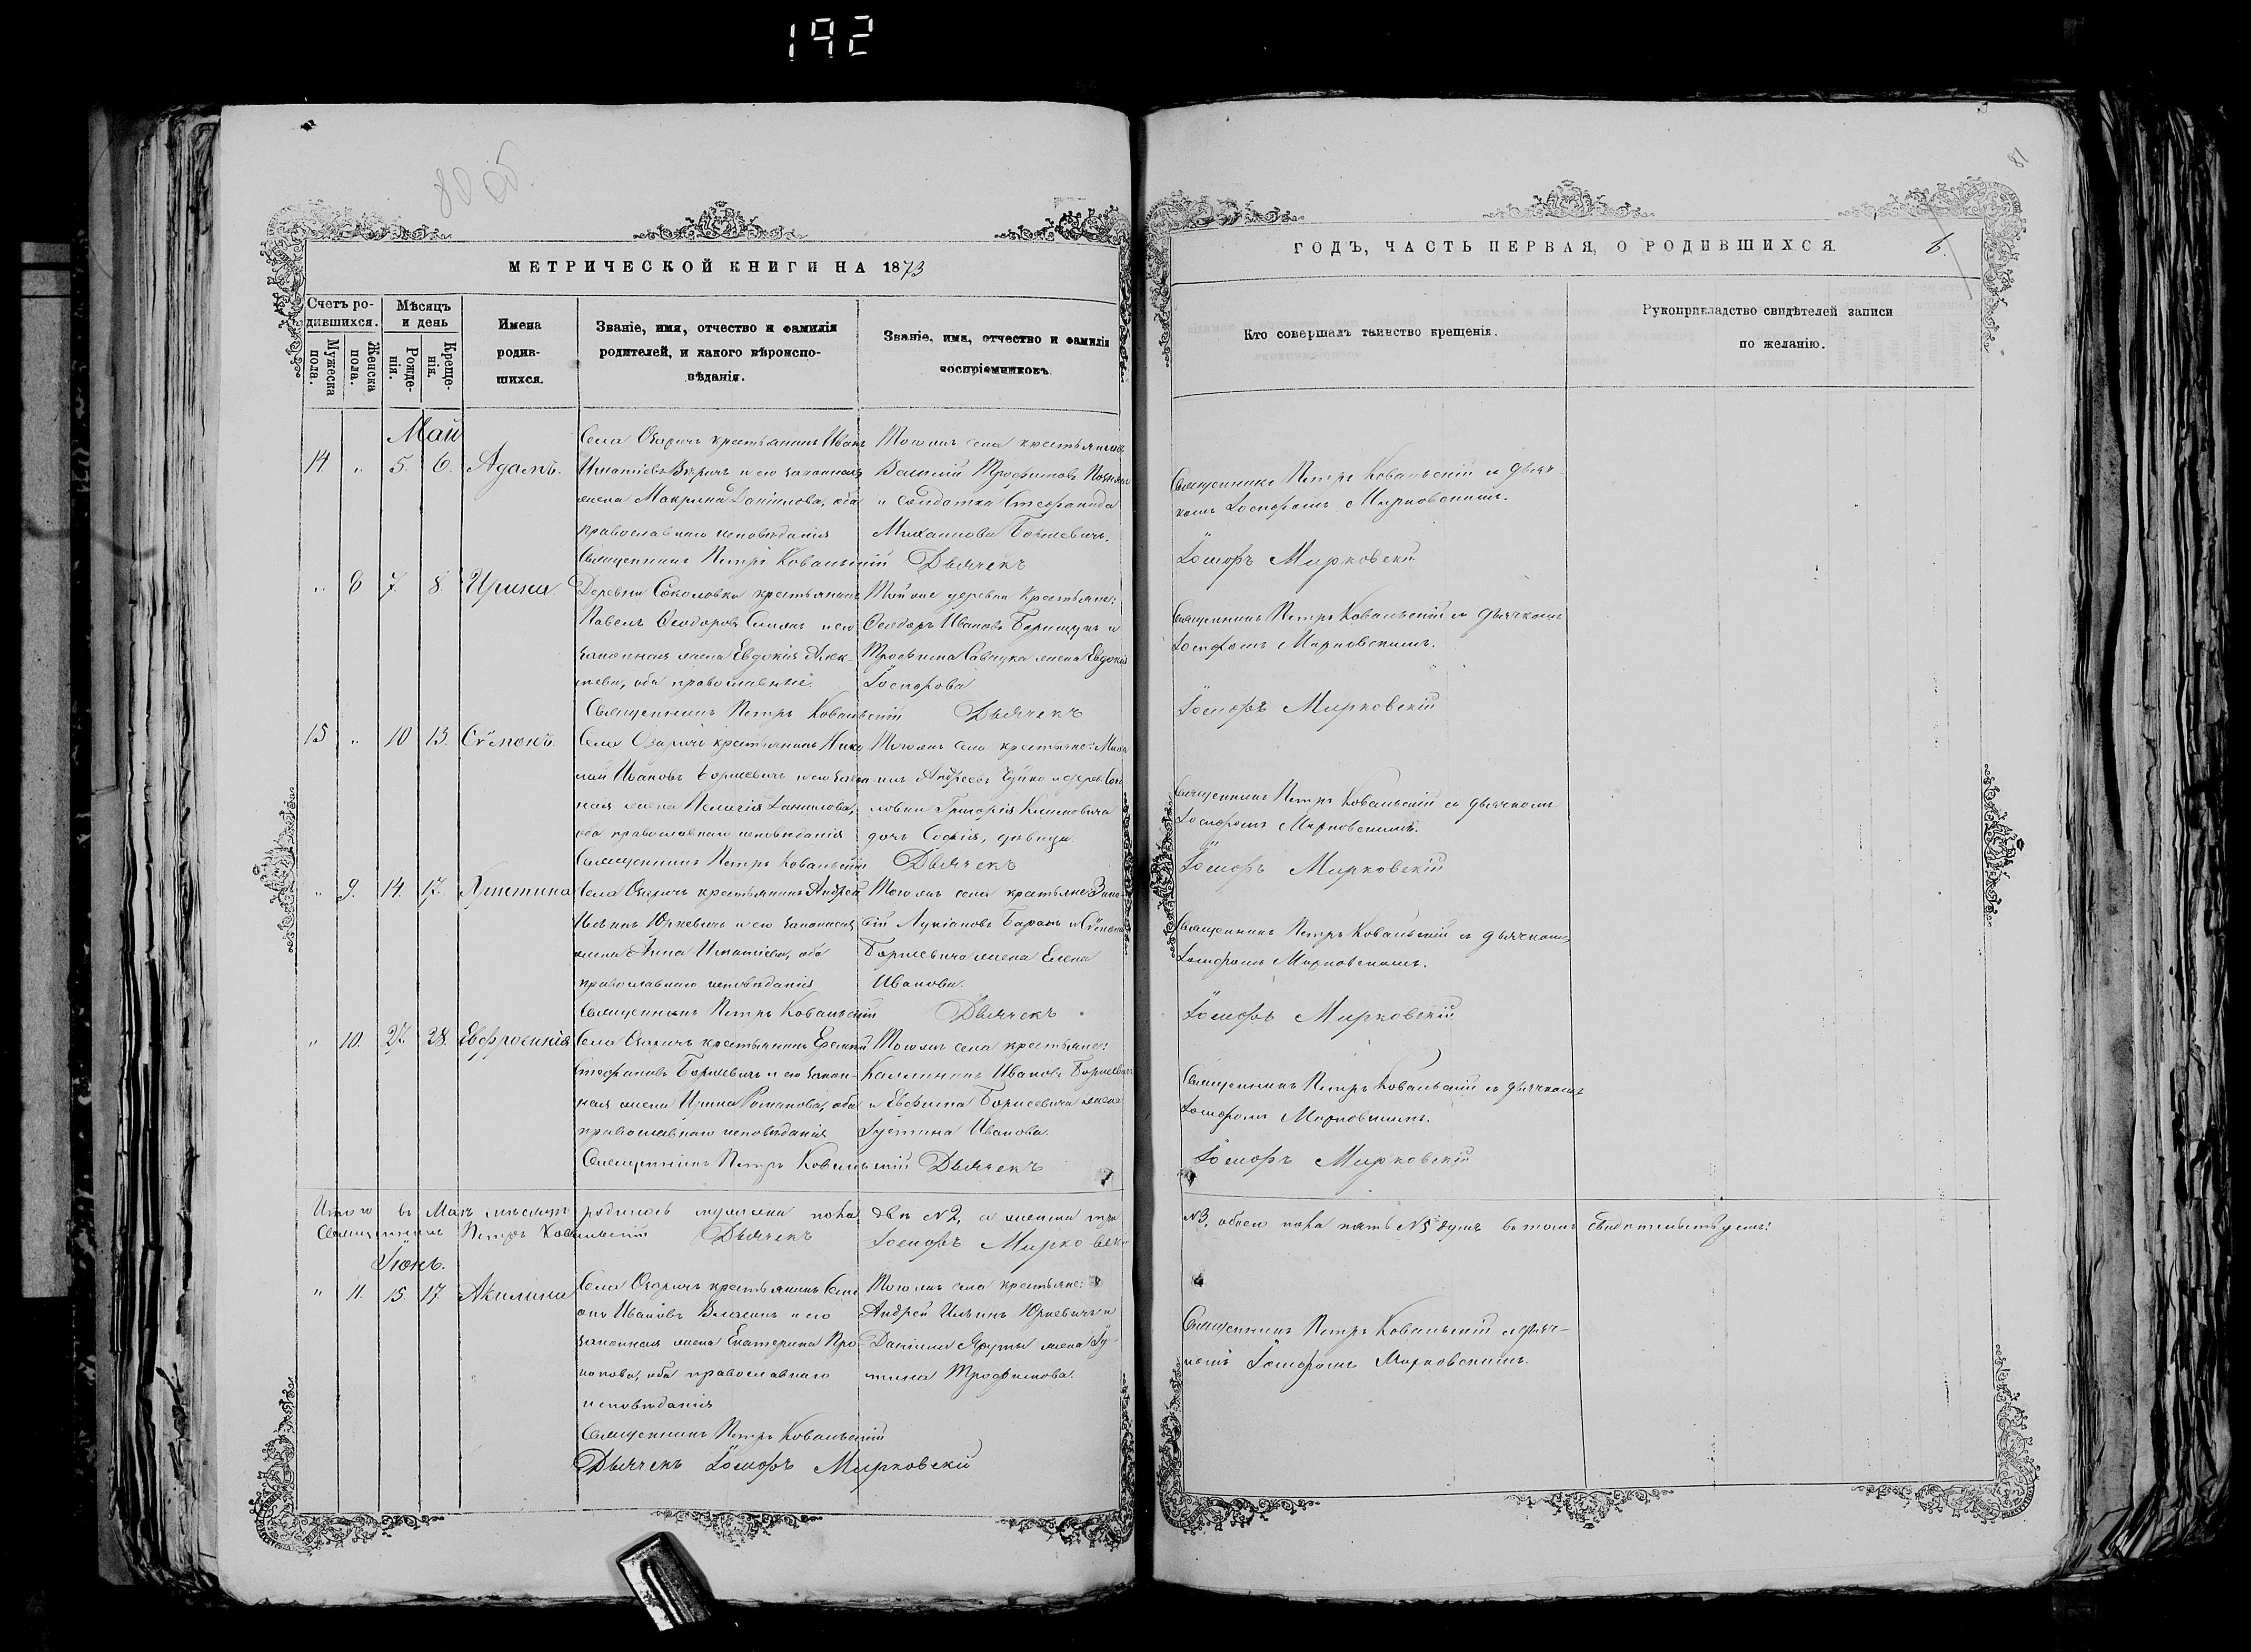 192
80 об.
81
МЕТРИЧЕСКОЙ КНИГИ НА 1873
Счетъ ро-
дившихся.
Мужеска
пола.
Женска
пола.
Мѣсяцъ
и день
Рожде-
нія.
Креще-
нія.
Имена
родив-
шихся.
Званіе, имя, отчество и фамилія
родителей, и какого вѣроиспо-
вѣданія.
Званіе, имя, отчество и фамилія
воспріемниковъ.
Май
14 „ 5. 6. Адамъ.
Села Озаричъ крестьянинъ Иванъ
Игнатіевъ и его законная
жена Макрина Данилова, оба
православнаго исповѣданія
Того же села крестьянинъ
Василій Трофимовъ
и солдатка Стефанида
Михаилова Борисевичъ.
Священникъ Петръ Ковальскій Дьячекъ
„ 8 7. 8. Ирина.
Деревни Соколовки крестьянинъ
Павелъ Ѳеодоровъ и его
законная жена Евдокія Алек-
ѣева, оба православные.
Той же деревни крестьяне:
Ѳеодоръ Ивановъ и
Трофима Савчука жена Евдокія
Іосифова
Священникъ Петръ Ковальскій Дьячекъ
15 „ 10 13. Сѵмеонъ.
Села Озаричъ крестьянинъ Нико
лай Ивановъ Борисевичъ и его закон
ная жена Пелагія Данилова,
оба православнаго исповѣданія
Того же села крестьяне:
Андреевъ и дерев. Соко
ловки Григорія Климовича
дочь Софія, дѣвица.
Священникъ Петръ Ковальскій Дьячекъ
„ 9. 14. 17. Христина
Села Озаричъ крестьянинъ Андрей
Ильинъ Юркевичъ и его законная
жена Анна Игнатіева, оба
православнаго исповѣданія
Того же села крестьяне: Зино
вій Лукіановъ Баранъ и Сѵмеона
Борисевича жена Елена
Иванова.
Священникъ Петръ Ковальскій Дьячекъ
„ 10. 27. 28. Евфросинія
Села Озаричъ крестьянинъ Еремій
Стефановъ Борисевичъ и его закон-
ная жена Ирина Романова, оба
православнаго исповѣданія
Того же села крестьяне:
Каллиникъ Ивановъ Борисевичъ
и Евфима Борисевича жена
Іустина Иванова.
Священникъ Петръ Ковальскій Дьячекъ
Итого въ Маѣ мѣсяцѣ родилось мужеска пола два №2, а женска три
Священникъ Петръ Ковальскій Дьячекъ Іосифъ Мирковскі
Іюнь.
„ 11. 15. 17 Акилина
Села Озаричъ крестьянинъ Семе
онъ Ивановъ и его
законная жена Екатерина Про-
копова, оба православнаго
исповѣданія
Того же села крестьяне:
Андрей Ильинъ Юркевичъ и
Даніила жена Іу-
стина Трофимова.
Священникъ Петръ Ковальскій
Дьячекъ Іосифъ Мирковскій
ГОДЪ, ЧАСТЬ ПЕРВАЯ, О РОДИВШИХСЯ
6.
Кто совершалъ таинство крещенія.
Рукоприкладство свидѣтелей записи
по желанію.
Священникъ Петръ Ковальскій съ дьяч-
комъ Іосифомъ Мирковскимъ.
Іосифъ Мирковскі
Священникъ Петръ Ковальскій съ дьячкомъ
Іосифомъ Мирковскимъ.
Іосифъ Мирковскій
Священникъ Петръ Ковальскій съ дьячкомъ
Іосифомъ Мирковскимъ.
Іосифъ Мирковскій
Священникъ Петръ Ковальскій съ дьячкомъ
Іосифомъ Мирковскимъ.
Іосифъ Мирковскій
Священникъ Петръ Ковальскій съ дьячкомъ
Іосифомъ Мирковскимъ.
Іосифъ Мирковскій
№3, обоего пола пять №5 душъ въ томъ свидѣтельствуемъ:
Священникъ Петръ Ковальскій съ дьяч-
комъ Іосифомъ Мирковскимъ.